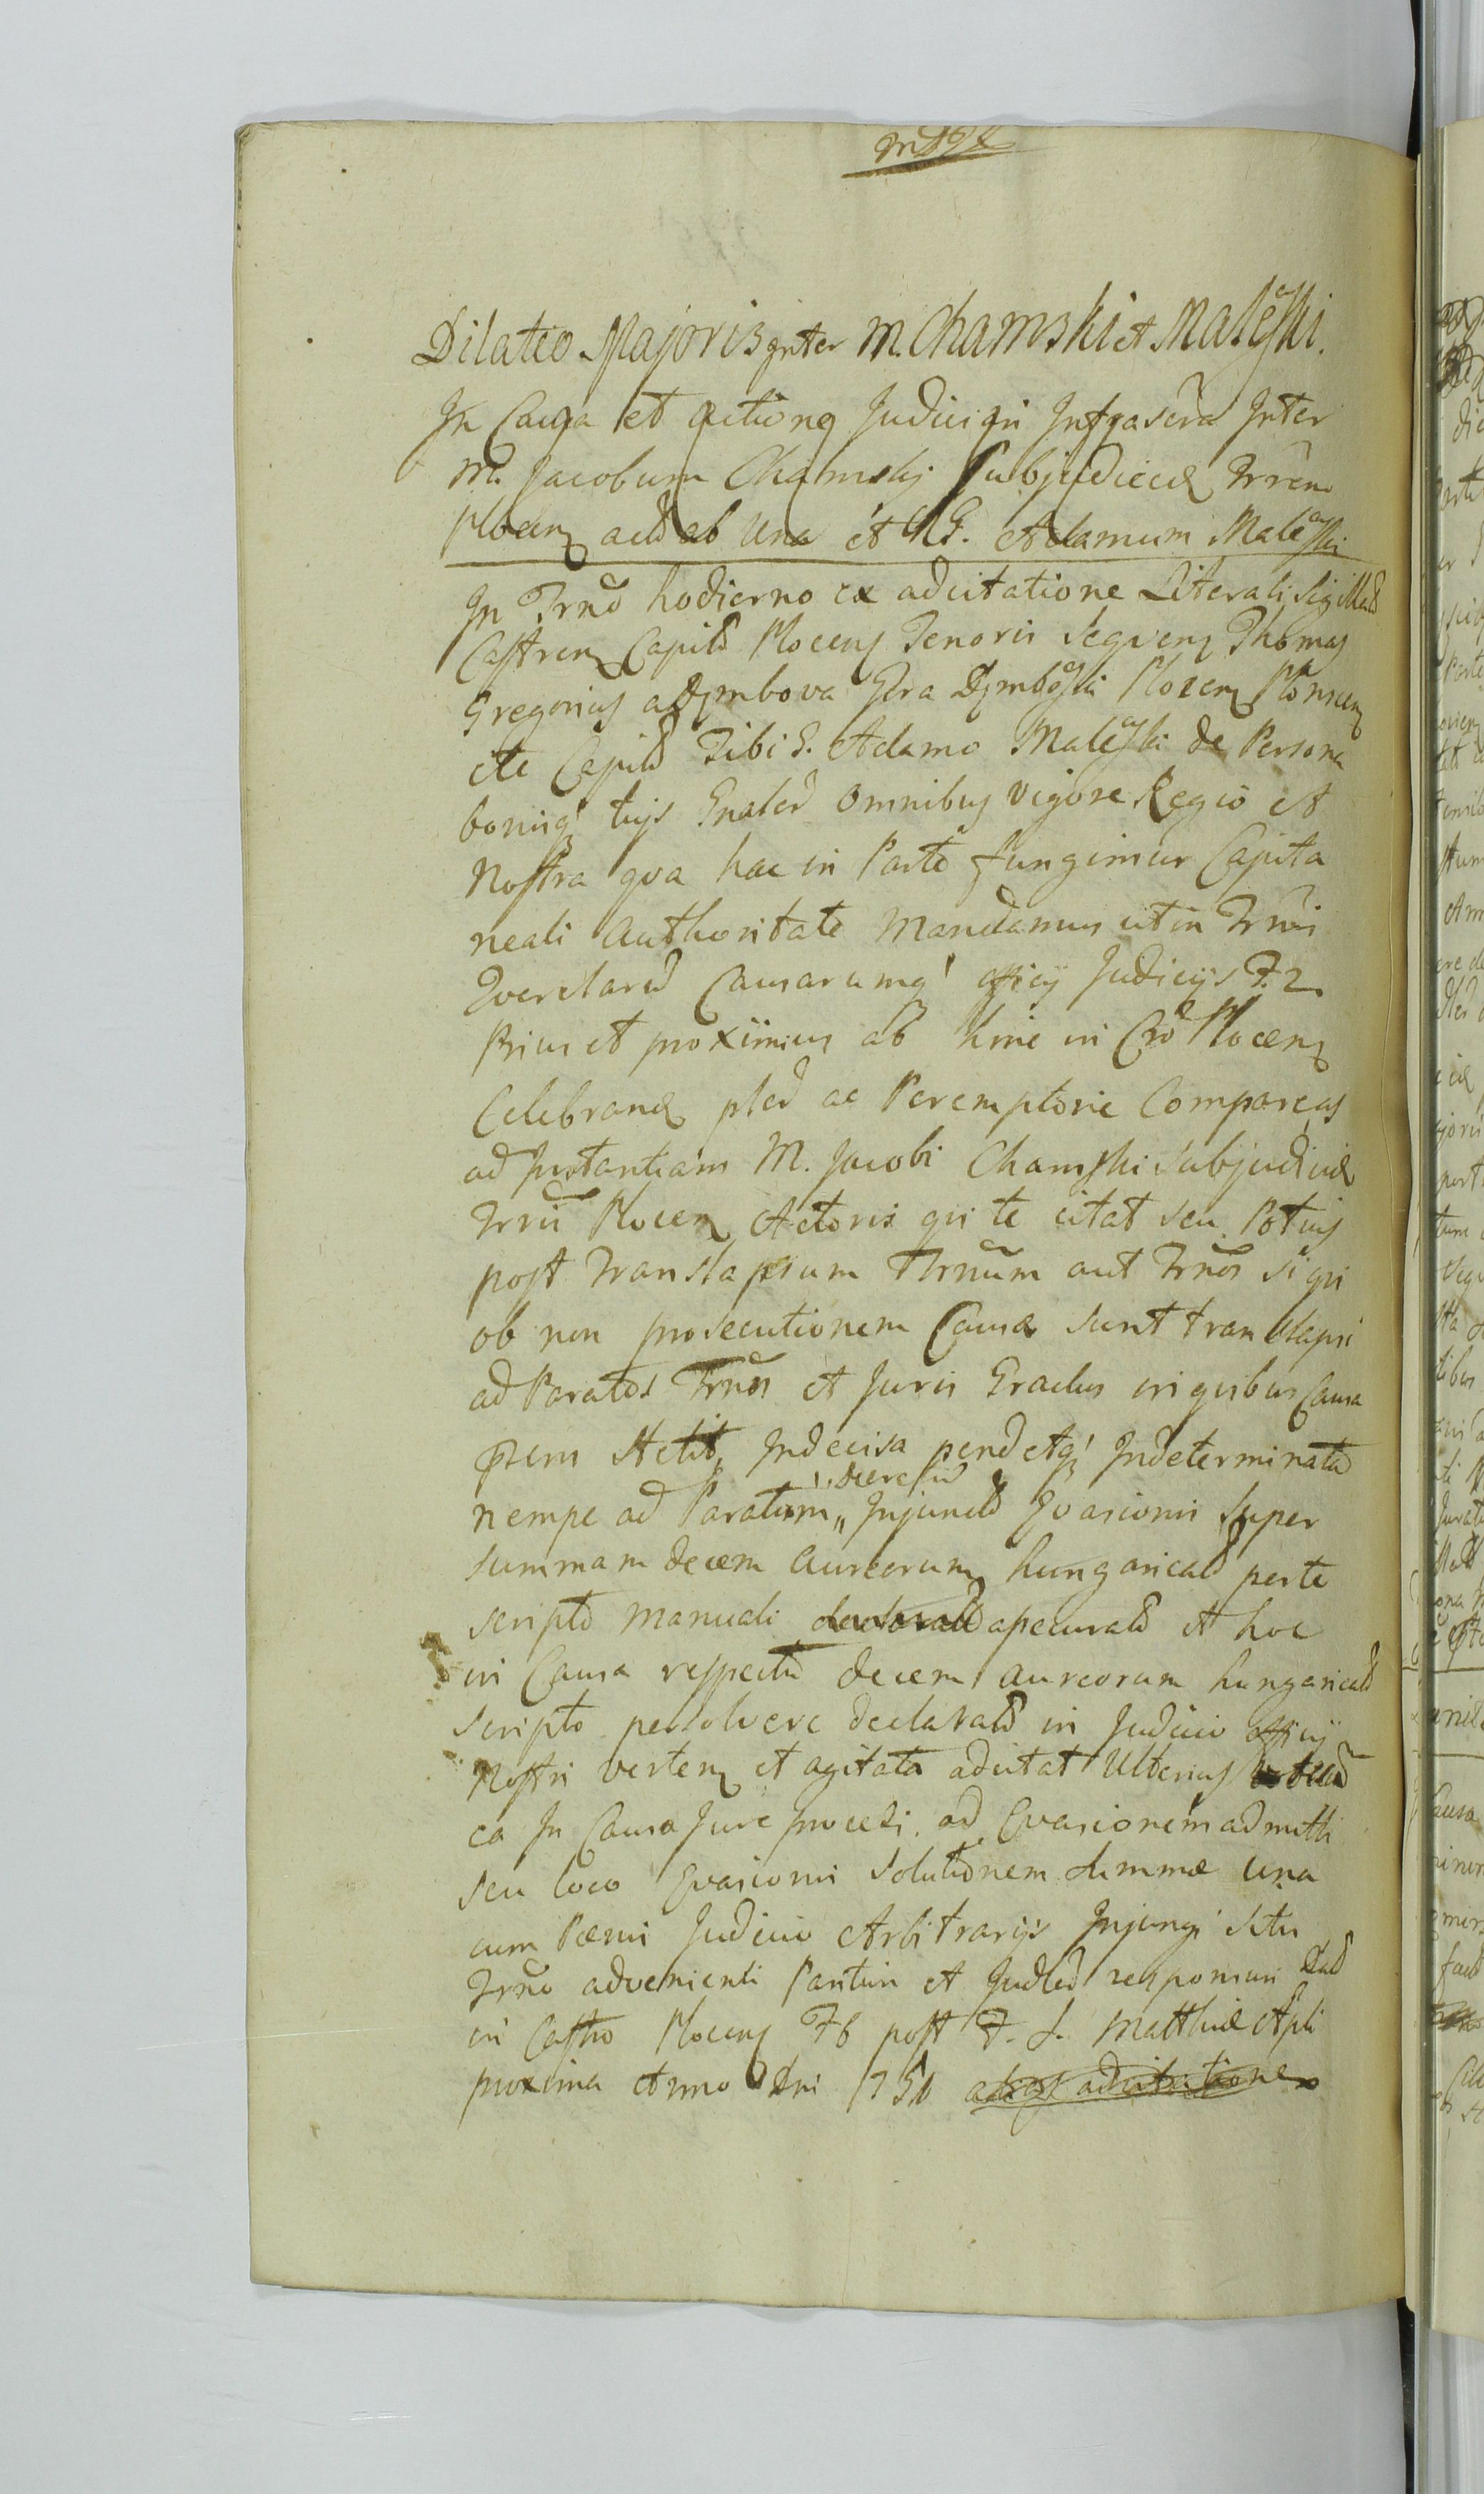 Dilatio Majoris Inter M. Chamski et Maleski.
In Causa et actione Judiciri Infrascra Inter
M. Jacobum Chamskj Subjudicem Trrem
Plocen act ab Una et G. Adamum Maleski
In Trno hodierno ex adcitatione Literali Sigillat
Castren Capit Plocens Tenoris Seqvens Thomas
Gregorius a Dymbova Gora Dymboski Plocen Plonscen
etc Capit Tibi G. Adamo Maleski de Persona
bonisq tuis Gnaler Omnibus vigore Regio et
Nostra qva hac in Parte fungimur Capita
neali Authoritate Mandamus ut in Trnis
Qverelarum Causarumq officij Judicijs F. 2
Prius et proximius ab hinc in Cro Plocens
Celebrand pler ac Peremptorie Compareas
ad Instantiam M. Jacobi Chamski Subjudicis
Trrii Plocen Actoris qui te citat seu Potius
post Translapsum Trnum aut Trnos si qui
ob non prosecutionem Causae sunt translapsi
ad Paratos Trnos et Juris Gradus in quibus Causa
psens stetit, Indecisa pendetq Indeterminata
decretum
nempe ad Paratum „ Injunct Evasionis super
summam decem aureorum hungaricalt per te
scripto manuali apecurat et hoc
in Causa respectu decem aureorum hungaricalt
scripto persolvere declarat in Judicio officij
Nostri verten et agitata adcitat Ulterius
ea In Causa Jure procedi ad Evasionem admitti
seu loco Evasionis Solutionem Summae una
cum Paenis Judicio Arbitrarijs Injungi Situ
Trno advenienti Pariturus et Judler responsurus Dat
in Castro Plocens F6 post F. S. Matthiae Apli
proxima Anno Dni 1750 adcitatione